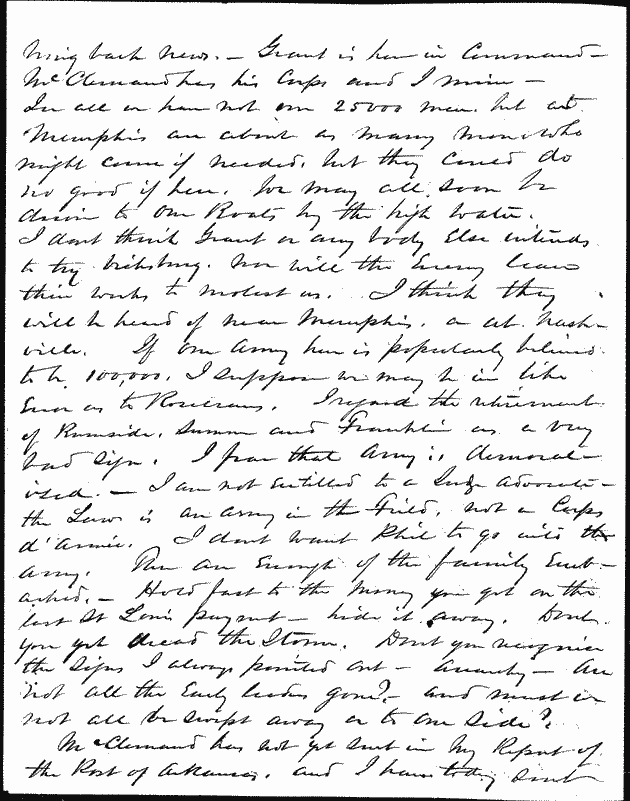 bring back news. — Grant is here in Command —
McClernand has his Corps and I mine —
In all we have not over 25000 men. but at
Memphis are about as many more who
might come if needed, but they could do
no good if here. We may all soon be
driven to our Boats by the high water.
I dont think Grant or any body Else intends
to try Vicksburg. Nor will the Enemy leave
their works to molest us. I think they
will be heard of near Memphis. or at Nash-
ville. If our Army here is popularly believed
to be 100,000. I suppose we may be in like
Error as to Rosecrans. I regard the retirement
of Burnside, Sumner and Franklin as a very
bad sign. I fear that Army is demoral-
ised. — I am not Entitled to a Judge Advocate —
the Law is an army in the Field, not a Corps
d'Armée. I dont want Phil to go into the
army. There are Enough of the family Emb-
arked. — Hold fast to the money you got on the
last St Louis payment — hide it away. Dont
you yet dread the Storm. Dont you recognise
the signs I always pointed out — anarchy — Are
not all the Early leaders gone? — and must we
not all be swept away or to one side?
McClernand has not yet sent in my Report of
the Post of Arkansas. and I have today sent